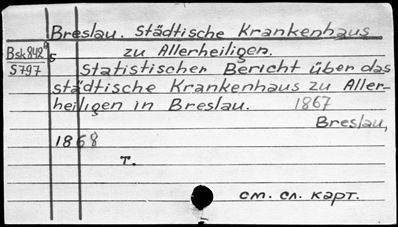 Breslau. Städtische Krankenhaus
zu Allerheiligen.
Bsk842
S797
Statistischer Bericht über das
städtische Krankenhaus zu Aller-
heiligen in Breslau. 1867
Breslau,
1868
т.
см. сл. карт.